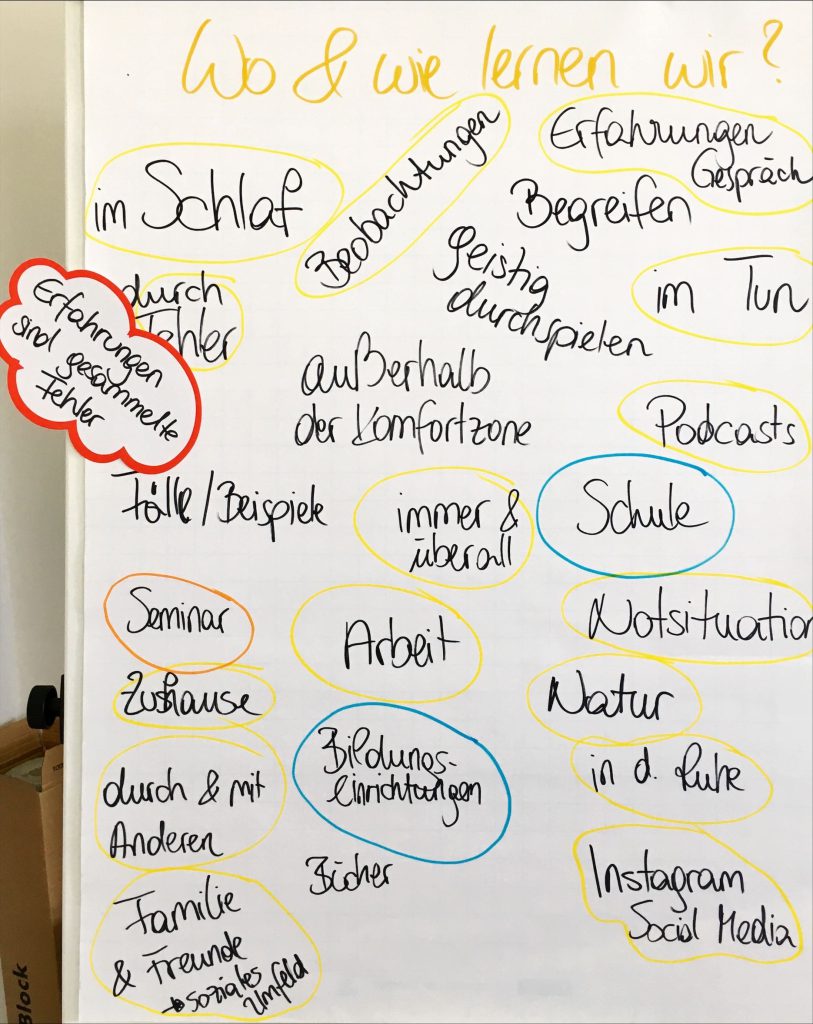 Wo & wie lernen wir?
im Schlaf
Beobachtungen
Erfahrungen
Gespräch
Begreifen
geistig
durchspielen
im Tun
durch
Fehler
Erfahrungen
sind gesammelte
Fehler
außerhalb
der Komfortzone
Podcasts
Fälle/Beispiele
immer &
überall
Schule
Seminar
Arbeit
Notsituation
Zuhause
Natur
Bildungs-
einrichtungen
in d. Ruhe
durch & mit
Anderen
Bücher
Instagram
Social Media
Familie
& Freunde
→ soziales
Umfeld
Block